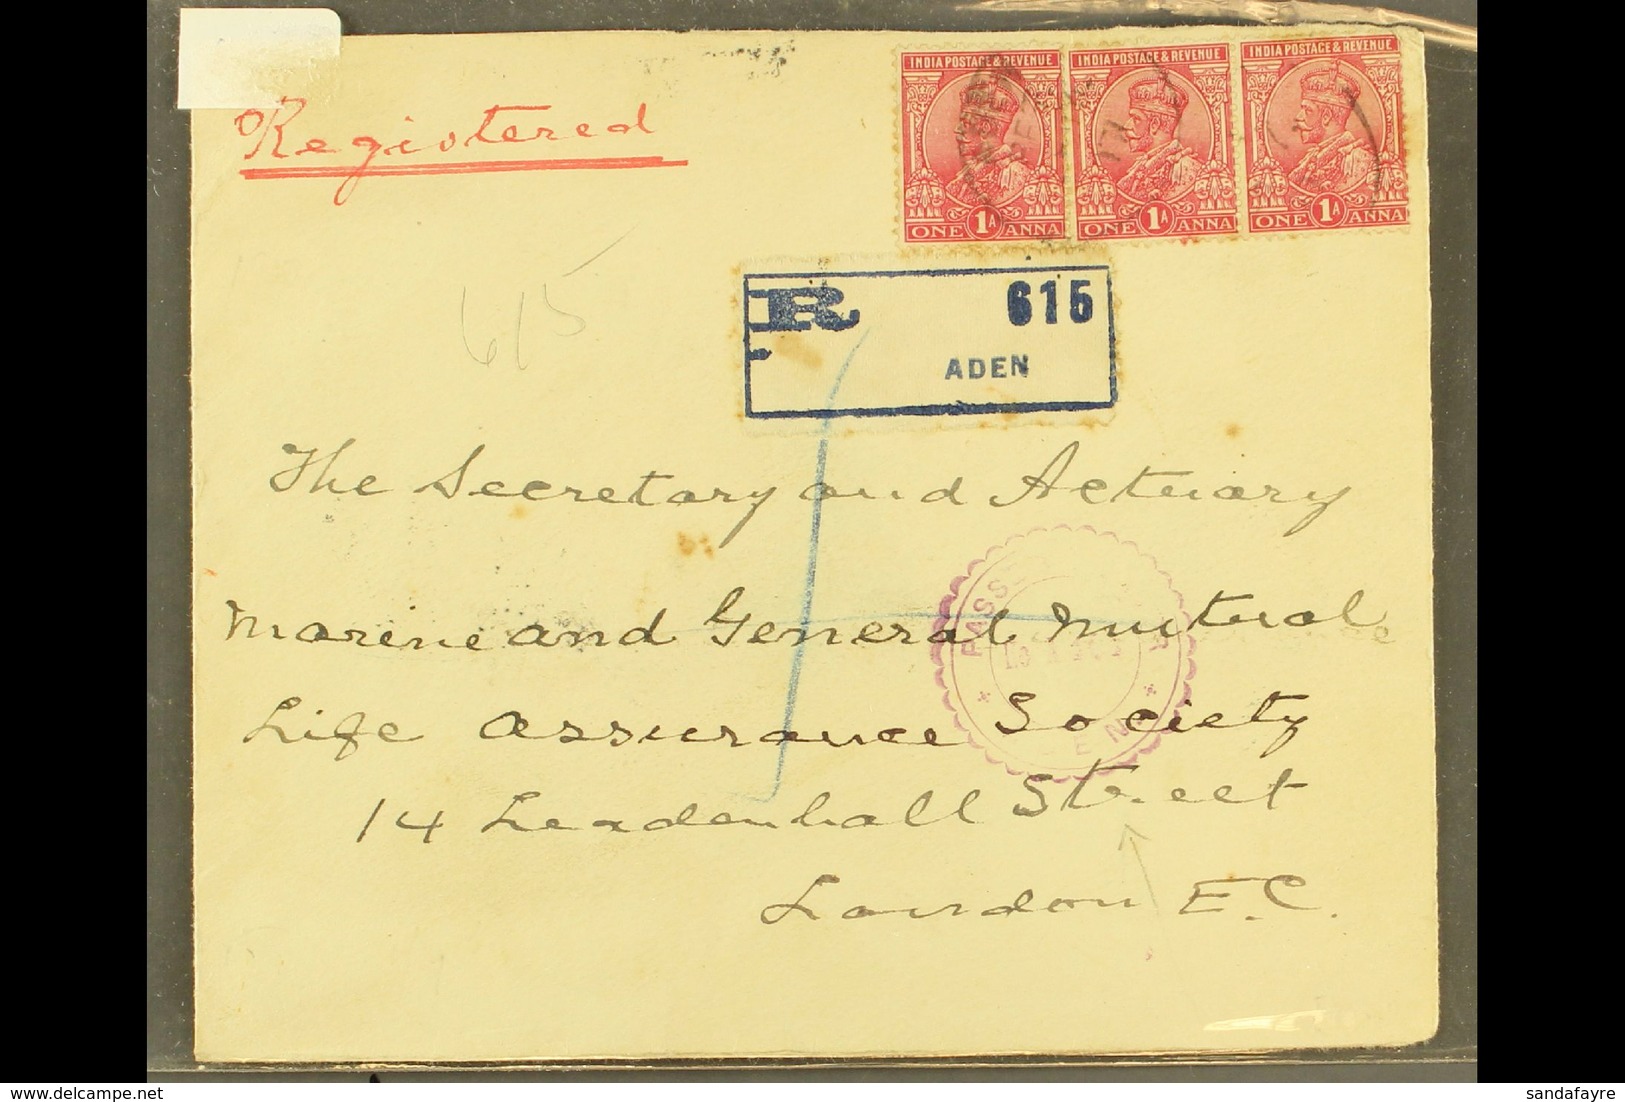 Registered
INDIA POSTAGE & REVENUE
INDIA POSTAGE & REVENUE
INDIA POSTAGE & REVENUE
1A
1A
1A
ONE ANNA
ONE ANNA
ONE ANNA
R 615
ADEN
615
The Secretary and Actuary
Marine and General Mutual
Life Assurance Society
14 Leadenhall Street
London E.C.
sandafayre